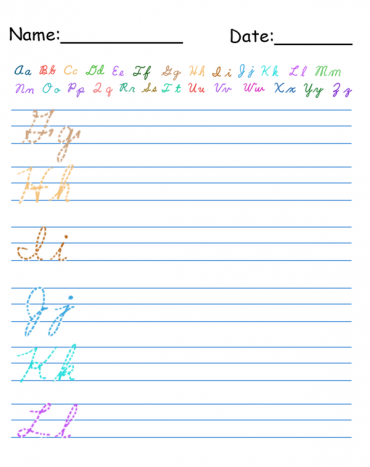 Name:____________ Date:________
Aa Bb Cc Dd Ee Ff Gg Hh Ii Jj Kk Ll Mm
Nn Oo Pp Qq Rr Ss Tt Uu Vv Ww Xx Yy Zz
Gg
Hh
Ii
Jj
Kk
Ll